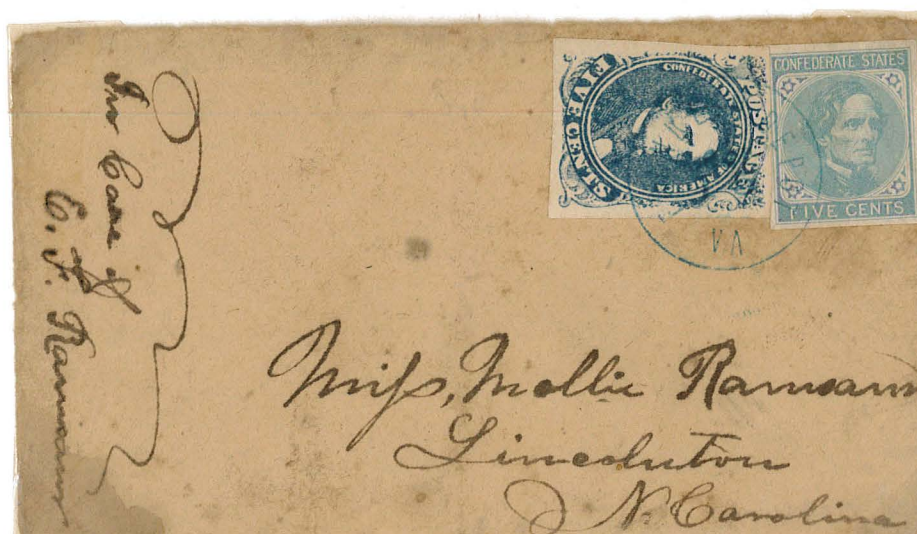 In Care of
F. Ramsaur
POSTAGE
CONFEDERATE STATES OF AMERICA
FIVE CENTS
CONFEDERATE STATES
FIVE CENTS
VA
Miss, Mollie Ramsaur
Lincolnton
N. Carolina